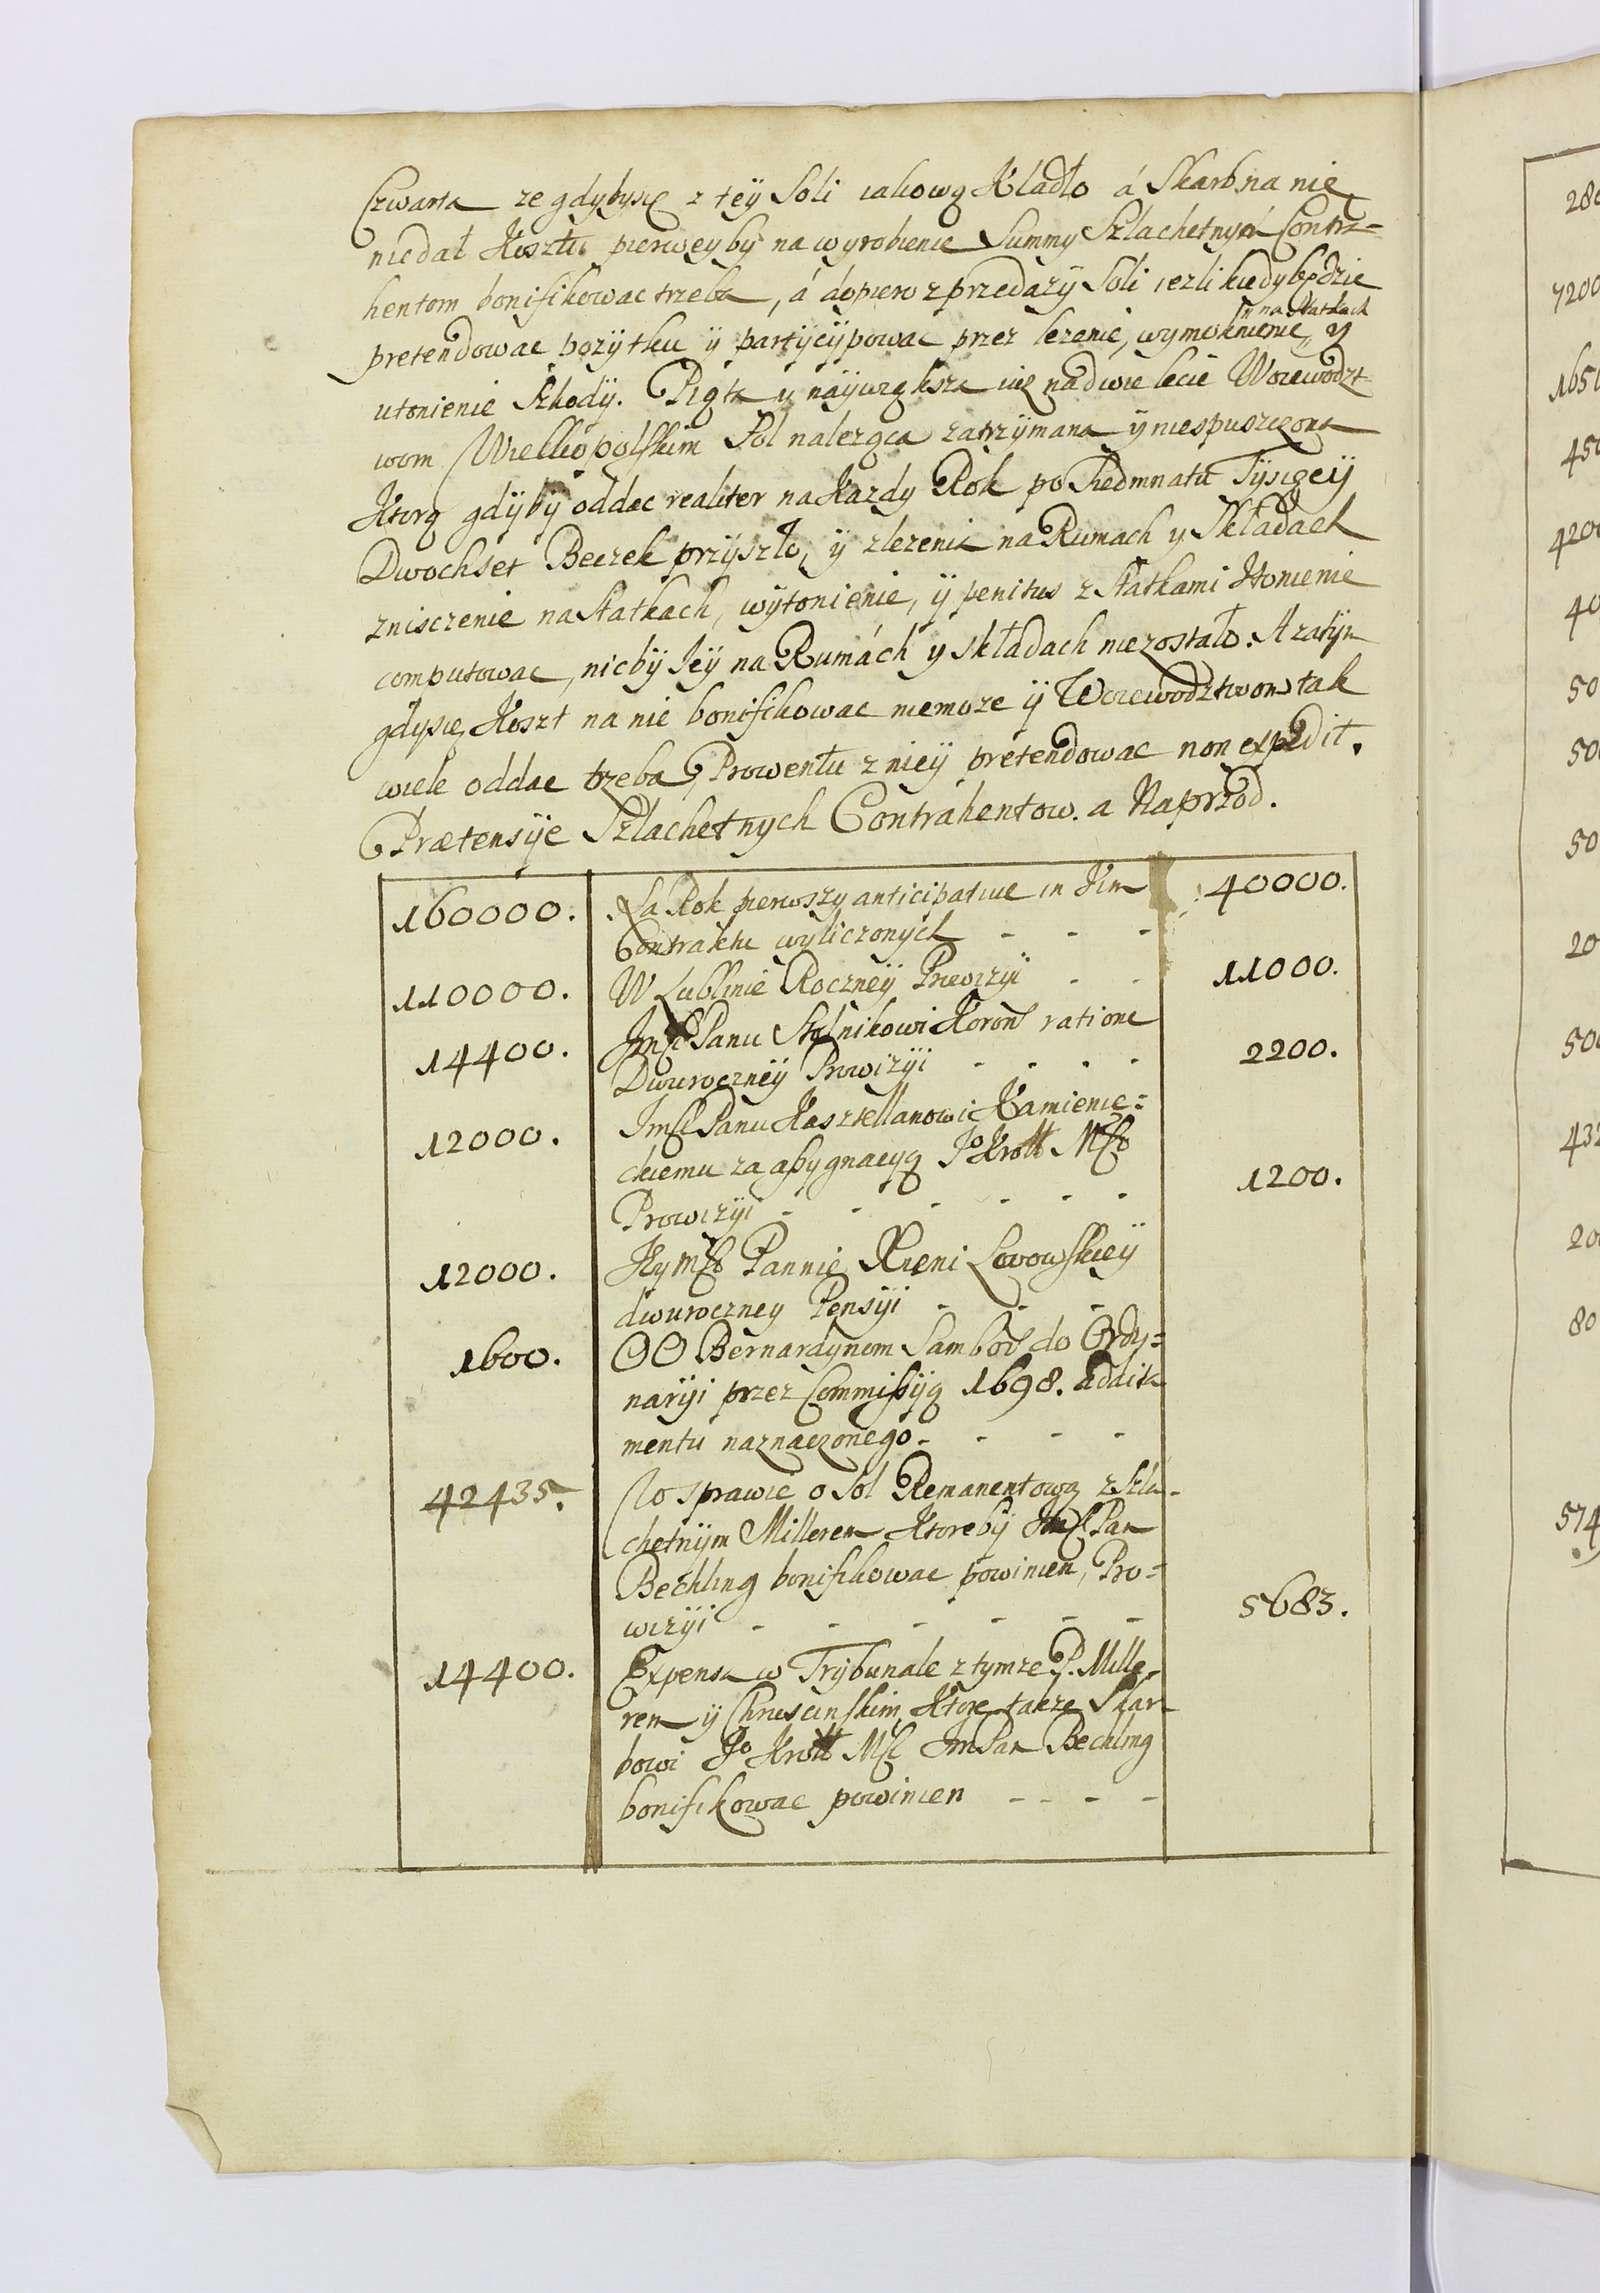 Czwarta ze gdybysię z teÿ Soli iakową Kładło á Skarb na nię
niedał Kosztu pierwey by na wyrobienie Summy Szlachetnym Contra=
hentom bonifikowac trzeba, á dopiero z przedazÿ Soli iezli kiedy będzie
pretendowac pozÿtku ÿ partÿcÿpowac przez lezenie, wymoknienie n na Statkach y
utonienie Szkodÿ. Piąta y náÿwiększa iuz na dwie lecie Woiewodzt
wom Wielkopolskim Sol naleząca zatrzÿmana ÿ niespuszczona
Ktorą gdÿbÿ oddac realiter na Kazdy Rok po Siedmnatu Tÿsięcÿ
Dwochset Beczek przÿszło, ÿ zlezenie na Rumach y Składach
zniszczenie na Statkach, wÿtonienie, ÿ penitus z Statkami Utonienie
computowac, nicbÿ Jeÿ na Rumách y składach niezostało. A zatÿm
gdysię Koszt na nię bonifikowac niemoze ÿ Woiewodztwom tak
wiele oddac trzeba, Prowentu z nieÿ pretendowac non expedit.
Prætensÿe Szlachetnych Contráhentow. a Naprzod.
160000. Za Rok pierwszy anticipative in Vim 40000.
Contraktu wyliczonÿch - - -
110000. W Lublinie Roczneÿ Prowizÿi - - 11000.
14400. Jmść Panu Stolnikowi Koron ratione
Dwuroczneÿ Prowizÿi - - - - 2200.
12000. Jmść Panu Kasztellanowi Kamienie=
ckiemu za aszygnacyą Jo Krolł Mści
Prowizÿi - - - - - - 1200.
12000. Jeymści Pannie Xieni Lwowskieÿ
dwuroczney Pensÿi - - -
1600. OO Bernardÿnom Sambor do Ordy=
narÿi przez Commissÿą 1698. addita
mentu naznaczonego - - - -
42435. W sprawie o Sol Remanentową z Szla-
chetnÿm Millerem Ktorebÿ Jmść Pan
Bechling bonifikowac powinien, Pro=
wizÿi - - - - - - 5683.
14400. Expensa w Trÿbunale z tymze P. Mille
rem ÿ Chruscinskim Ktore takze Skar
bowi Jo Krolł Mści Jm Pan Bechling
bonifikowac powinien - - - -
280
7200
1650
450
4200
40
50
50
50
20
500
432
20
80
574